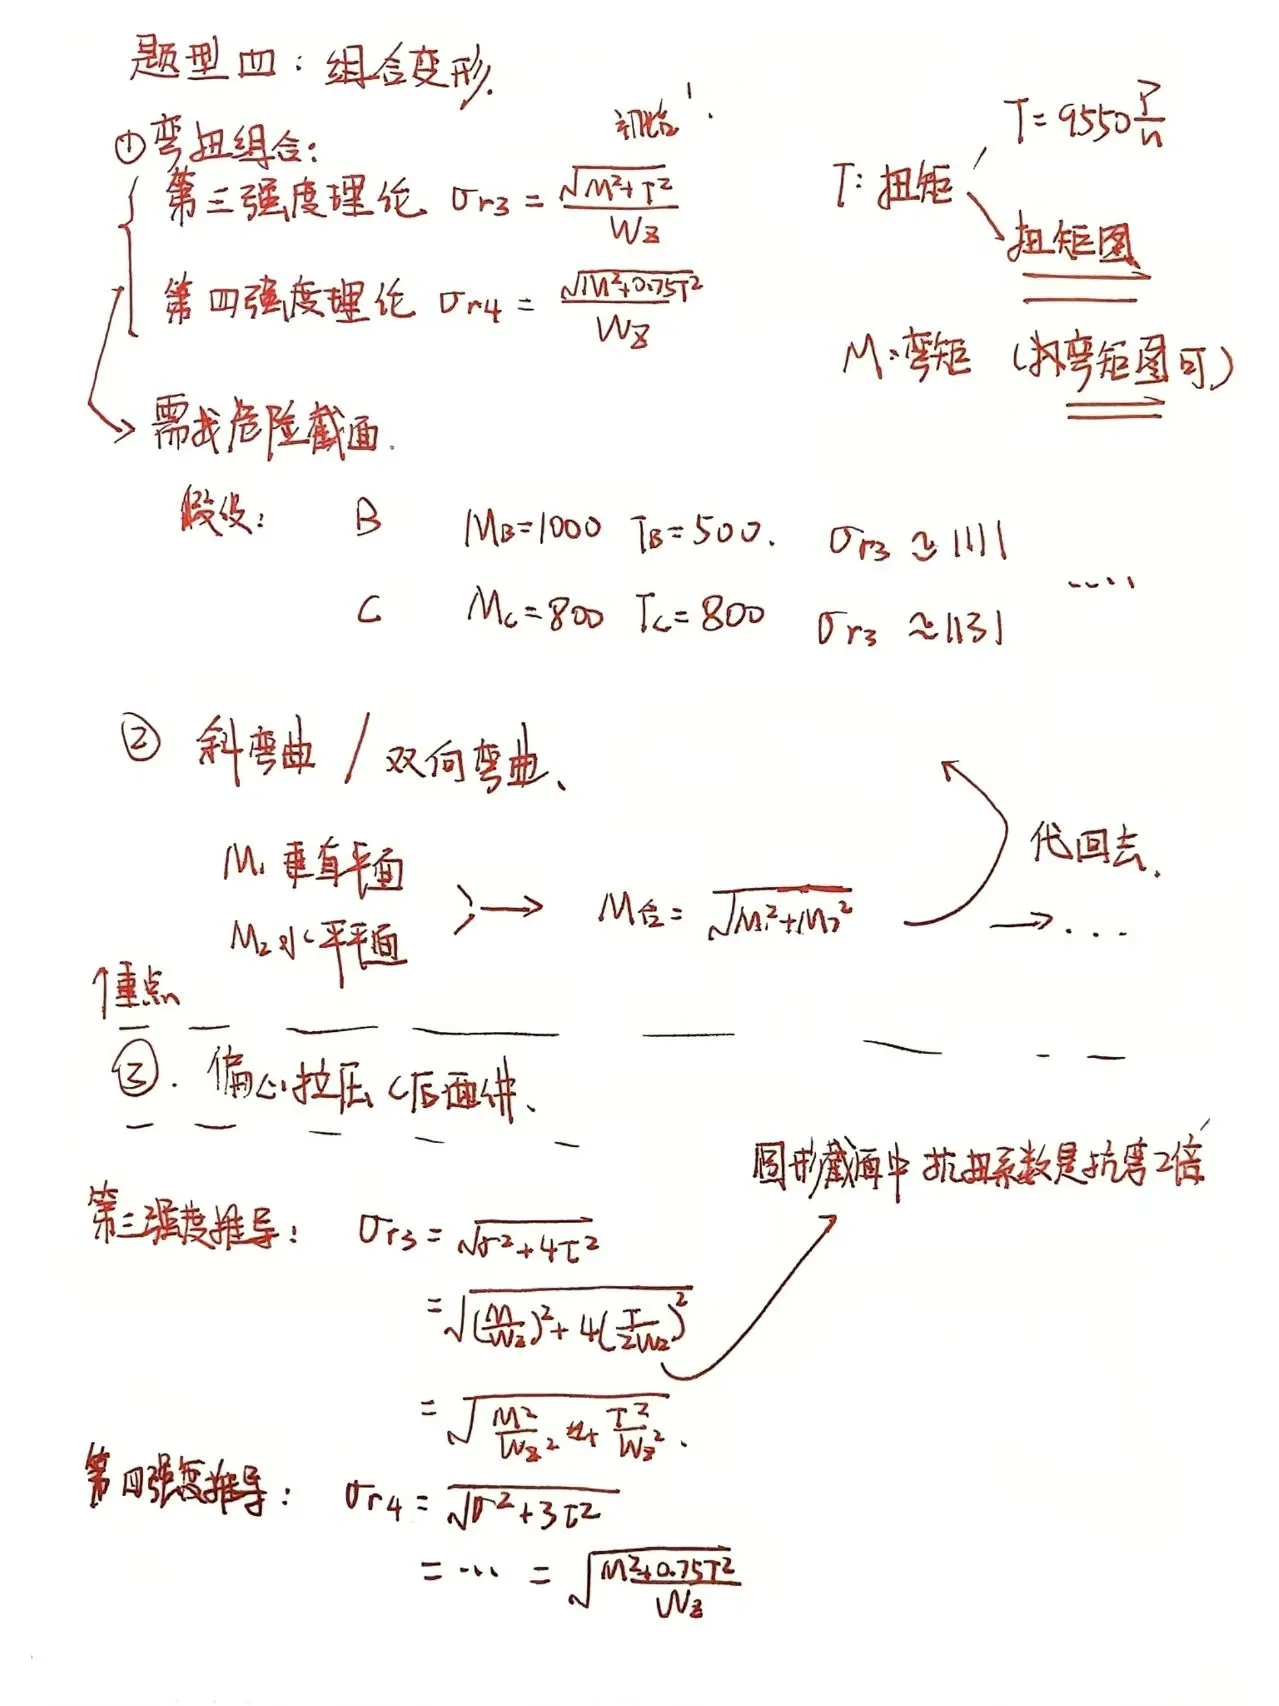 题型四：组合变形.
①弯扭组合：
第三强度理论 σr3 = √(M²+T²) / Wz
第四强度理论 σr4 = √(M²+0.75T²) / Wz
T：扭矩
T=9550 P/n
扭矩图
M：弯矩（找弯矩图可）
需找危险截面.
假设： B MB=1000 TB=500. σr3≈1111
C MC=800 TC=800 σr3≈1131
....
② 斜弯曲 / 双向弯曲、
M₁ 垂直平面
M₂ 水平平面
→ M合= √(M₁²+M₂²)
代回去.
→ ...
↑重点
③. 偏心拉压（后面讲、
圆形截面中 抗扭系数是抗弯2倍
第三强度推导： σr3 = √(σ²+4τ²)
= √((M/Wz)²+4(T/2Wz)²)
= √(M²/Wz² + T²/Wz²).
第四强度推导： σr4 = √(σ²+3τ²)
= ... = √((M²+0.75T²)/Wz)